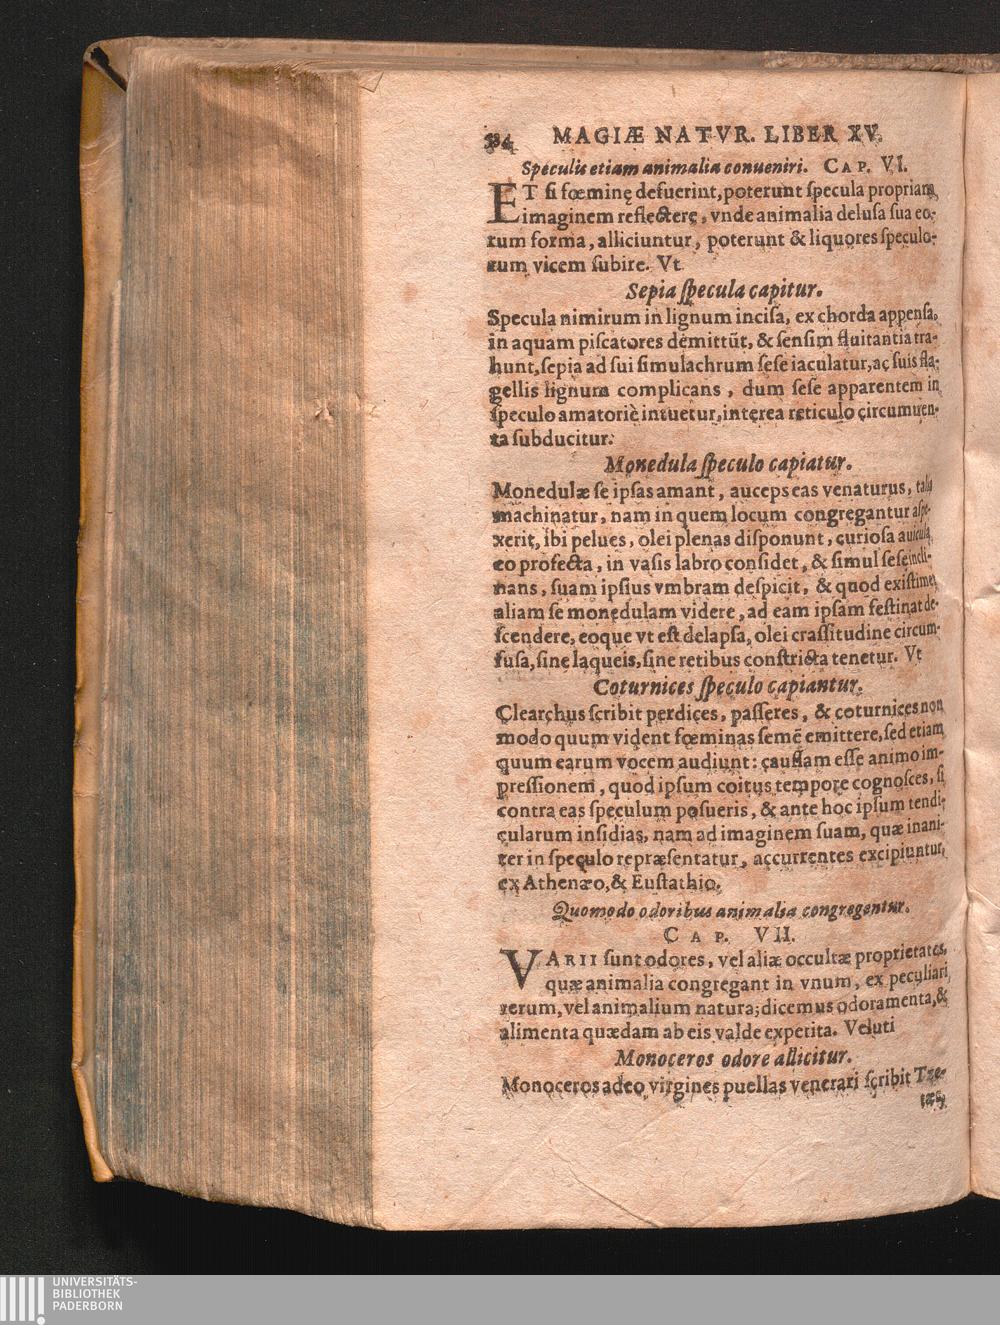 MAGIÆ NATVR. LIBER XV.
Speculis etiam animalia conueniri. CAP. VI.
ET ſi fœminę defuerint, poterunt ſpecula propriam
imaginem reflectere, vnde animalia deluſa ſua eo-
rum forma, alliciuntur, poterunt & liquores ſpeculo-
rum vicem ſubire. Vt
Sepia ſpecula capitur.
Specula nimirum in lignum inciſa, ex chorda appenſa,
in aquam piſcatores demittūt, & ſenſim fluitantia tra-
hunt, ſepia ad ſui ſimulachrum ſeſe iaculatur, ac ſuis fla-
gellis lignum complicans, dum ſeſe apparentem in
ſpeculo amatoriè intuetur, interea reticulo circumuen-
ta ſubducitur.
Monedula ſpeculo capiatur.
Monedulæ ſe ipſas amant, auceps eas venaturus, talia
machinatur, nam in quem locum congregantur aſpe-
xerit, ibi pelues, olei plenas diſponunt, curioſa auicula
eo profecta, in vaſis labro conſidet, & ſimul ſeſe incli-
nans, ſuam ipſius vmbram deſpicit, & quod exiſtimet
aliam ſe monedulam videre, ad eam ipſam feſtinat de-
ſcendere, eoque vt eſt delapſa, olei craſſitudine circum-
fuſa, ſine laqueis, ſine retibus conſtricta tenetur. Vt
Coturnices ſpeculo capiantur.
Clearchus ſcribit perdices, paſſeres, & coturnices non
modo quum vident fœminas ſemē emittere, ſed etiam
quum earum vocem audiunt: cauſſam eſſe animo im-
preſſionem, quod ipſum coitus tempore cognoſces, ſi
contra eas ſpeculum poſueris, & ante hoc ipſum tendi-
cularum inſidias, nam ad imaginem ſuam, quæ inani-
ter in ſpeculo repræſentatur, accurrentes excipiuntur,
ex Athenæo, & Euſtathio.
Quomodo odoribus animalia congregentur.
CAP. VII.
VARII ſunt odores, vel aliæ occultæ proprietates,
quæ animalia congregant in vnum, ex peculiari
rerum, vel animalium natura; dicemus odoramenta, &
alimenta quædam ab eis valde expetita. Veluti
Monoceros odore allicitur.
Monoceros adeo virgines puellas venerari ſcribit Tze-
UNIVERSITÄTS-
BIBLIOTHEK
PADERBORN